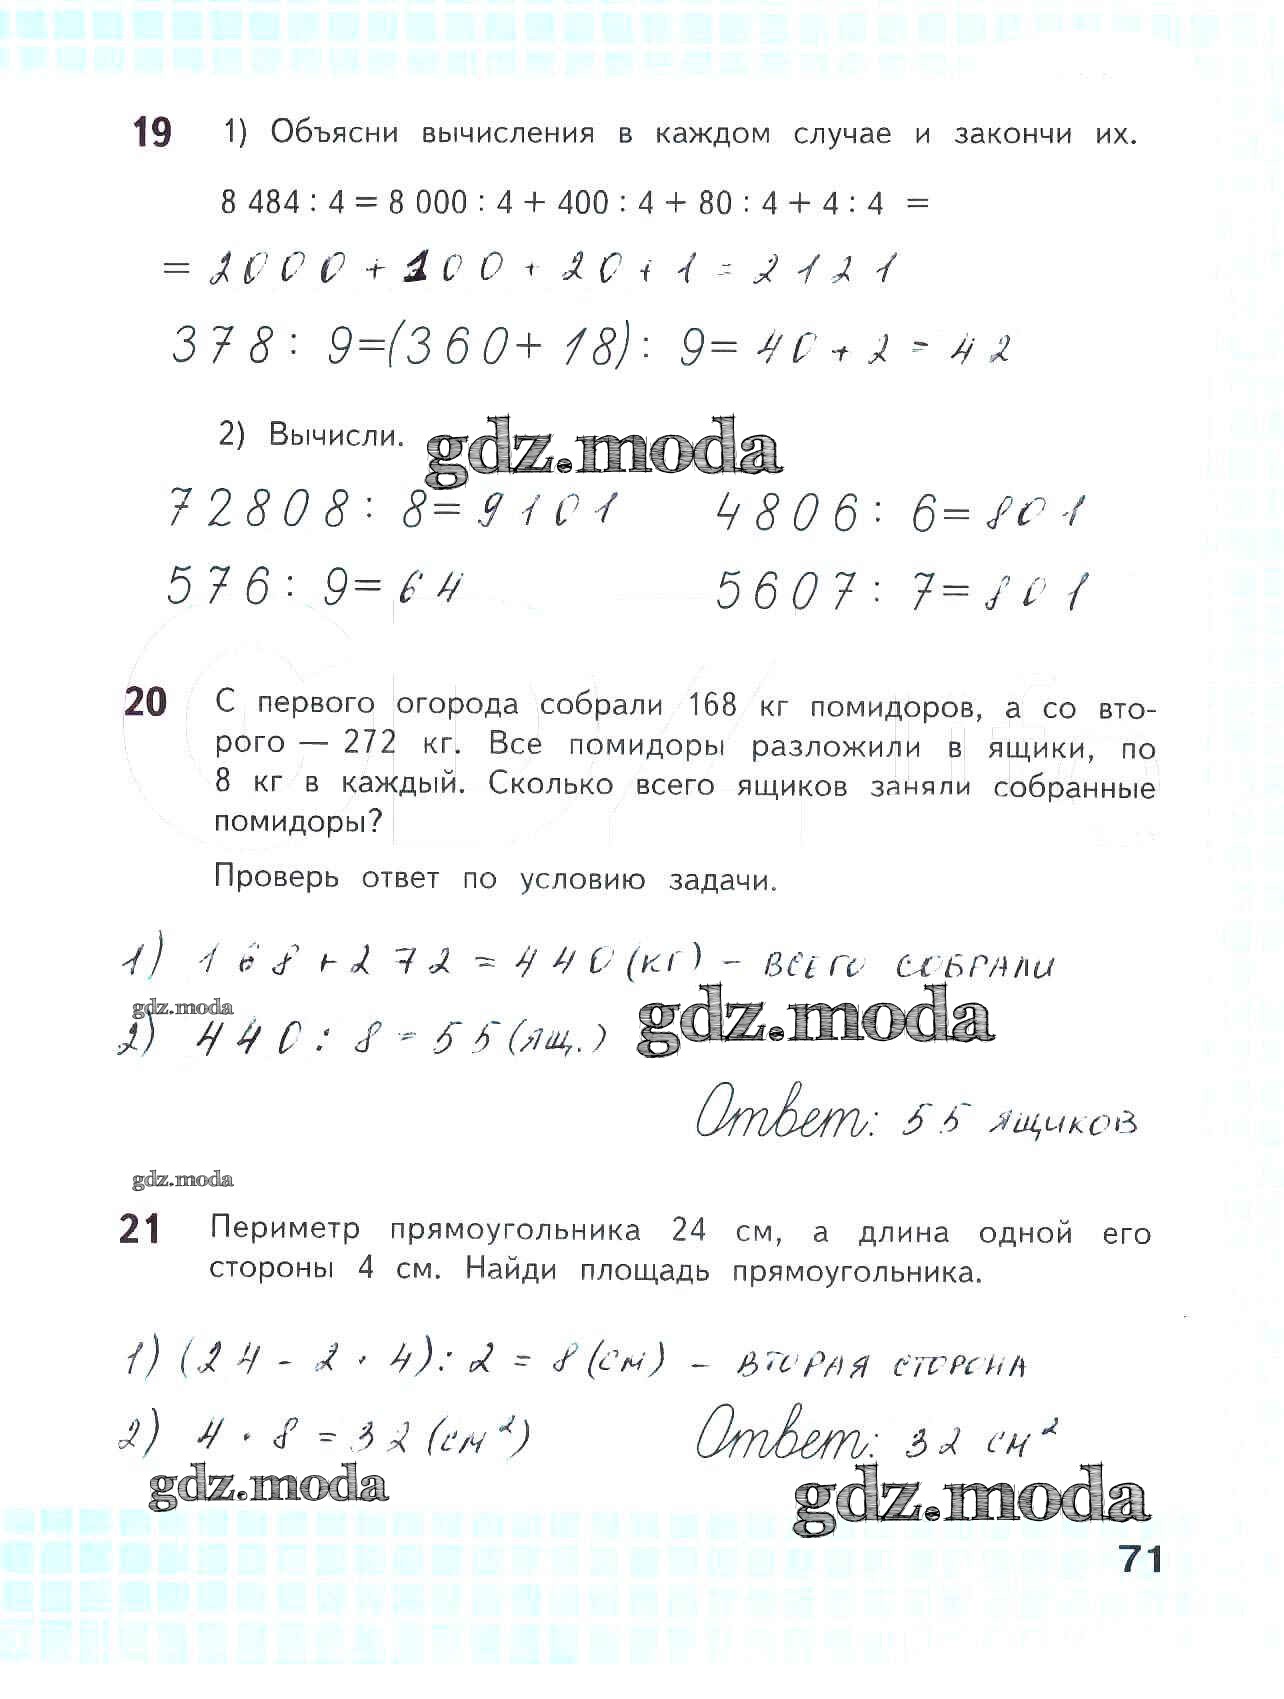 19 1) Объясни вычисления в каждом случае и закончи их.
8 484 : 4 = 8 000 : 4 + 400 : 4 + 80 : 4 + 4 : 4 =
= 2000 + 100 + 20 + 1 = 2121
378 : 9 = (360 + 18) : 9 = 40 + 2 = 42
2) Вычисли.
gdz.moda
72808 : 8 = 9101 4806 : 6 = 801
576 : 9 = 64 5607 : 7 = 801
20 С первого огорода собрали 168 кг помидоров, а со вто-
рого — 272 кг. Все помидоры разложили в ящики, по
8 кг в каждый. Сколько всего ящиков заняли собранные
помидоры?
Проверь ответ по условию задачи.
1) 168 + 272 = 440 (кг) - всего собрали
gdz.moda
gdz.moda
2) 440 : 8 = 55 (ящ.)
Ответ: 55 ящиков
gdz.moda
21 Периметр прямоугольника 24 см, а длина одной его
стороны 4 см. Найди площадь прямоугольника.
1) (24 - 2 · 4) : 2 = 8 (см) - вторая сторона
2) 4 · 8 = 32 (см²) Ответ: 32 см²
gdz.moda
gdz.moda
71